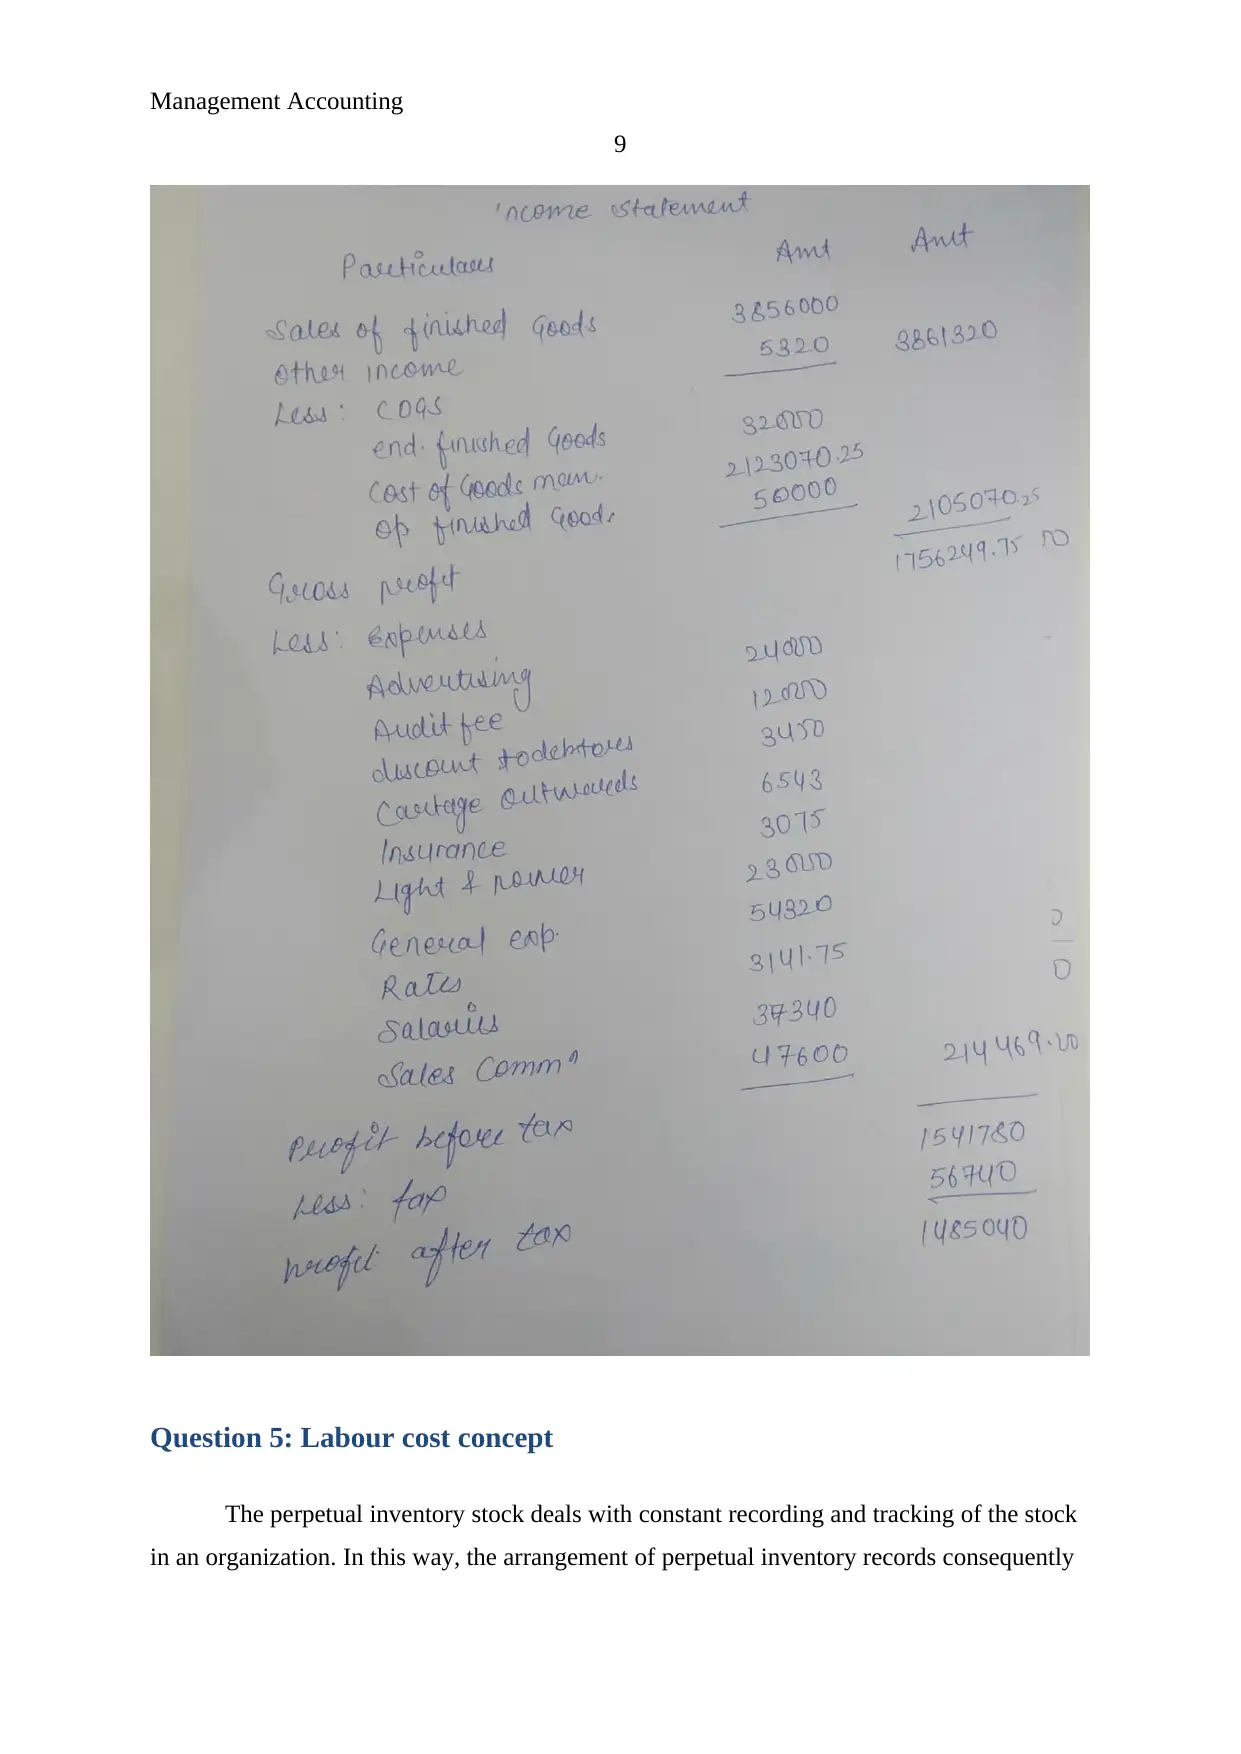 Management Accounting
9
Income statement
Particulars Amt Amt
Sales of finished Goods 3856000
other income 5320 3861320
Less: COGS
end. finished Goods 32000
Cost of Goods man. 2123070.25
op finished Goods 50000 2105070.25
Gross profit 1756249.75
Less: Expenses
Advertising 24000
Audit fee 12000
discount to debtors 3450
Cartage outwards 6543
Insurance 3075
Light & power 23000
General exp. 54320
Rates 3141.75
Salaries 37340
Sales Commn 47600 214469.
Profit before tax 1541780
Less: tax 56740
profit after tax 1485040
Question 5: Labour cost concept
The perpetual inventory stock deals with constant recording and tracking of the stock
in an organization. In this way, the arrangement of perpetual inventory records consequently